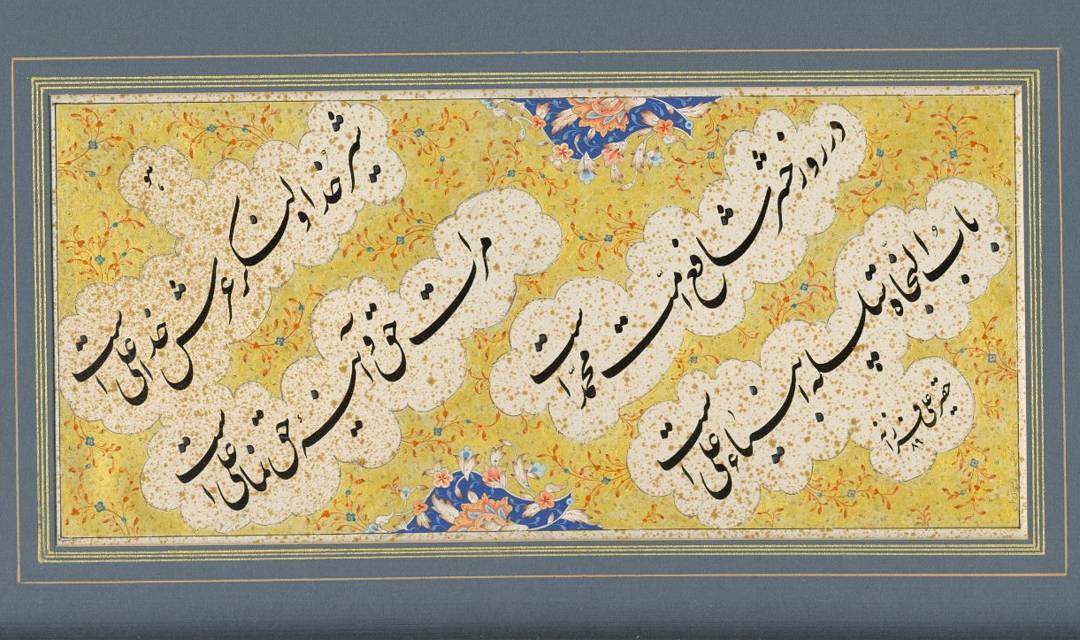 در روز حشر شافع امّت محمّد است
باب النجاة سلسله انبیاء علی است
شیر خدا و لنگر عرش خدا علی است
مرآت حق و آینهٔ حق نما علی است
حقیر علی
۸۹